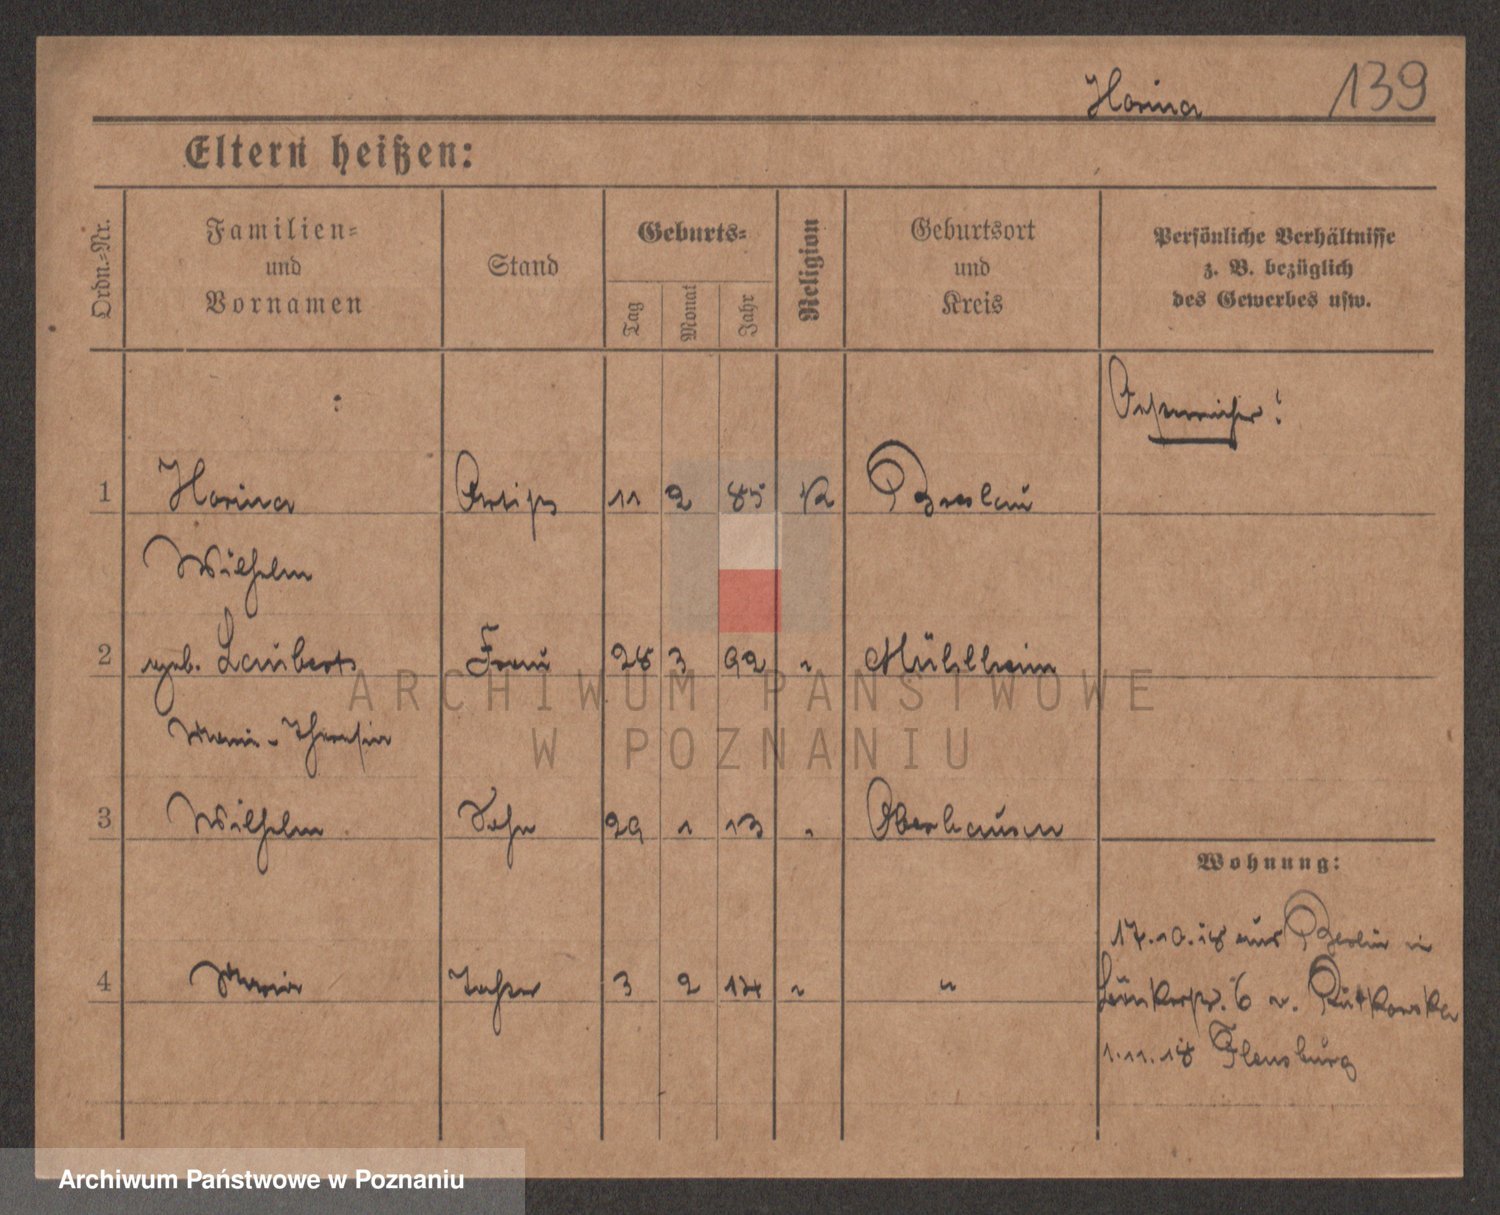 Horina 139
Eltern heißen:
Ordn.-Nr.
Familien-
und
Vornamen
Stand
Geburts-
Tag
Monat
Jahr
Religion
Geburtsort
und
Kreis
Persönliche Verhältnisse
z. B. bezüglich
des Gewerbes usw.
Österreicher!
1 Horina Artist 11 2 85 K Breslau
Wilhelm
2 geb. Laubert Frau 28 3 92 " Mühlheim
Marie-Theresia
3 Wilhelm Sohn 29 1 13 " Oberhausen
Wohnung:
17.10.18 aus Berlin in
4 Maria Tochter 3 2 14 " "
6 v. Rutkowska
1.11.18 Flensburg
ARCHIWUM PAŃSTWOWE
W POZNANIU
Archiwum Państwowe w Poznaniu